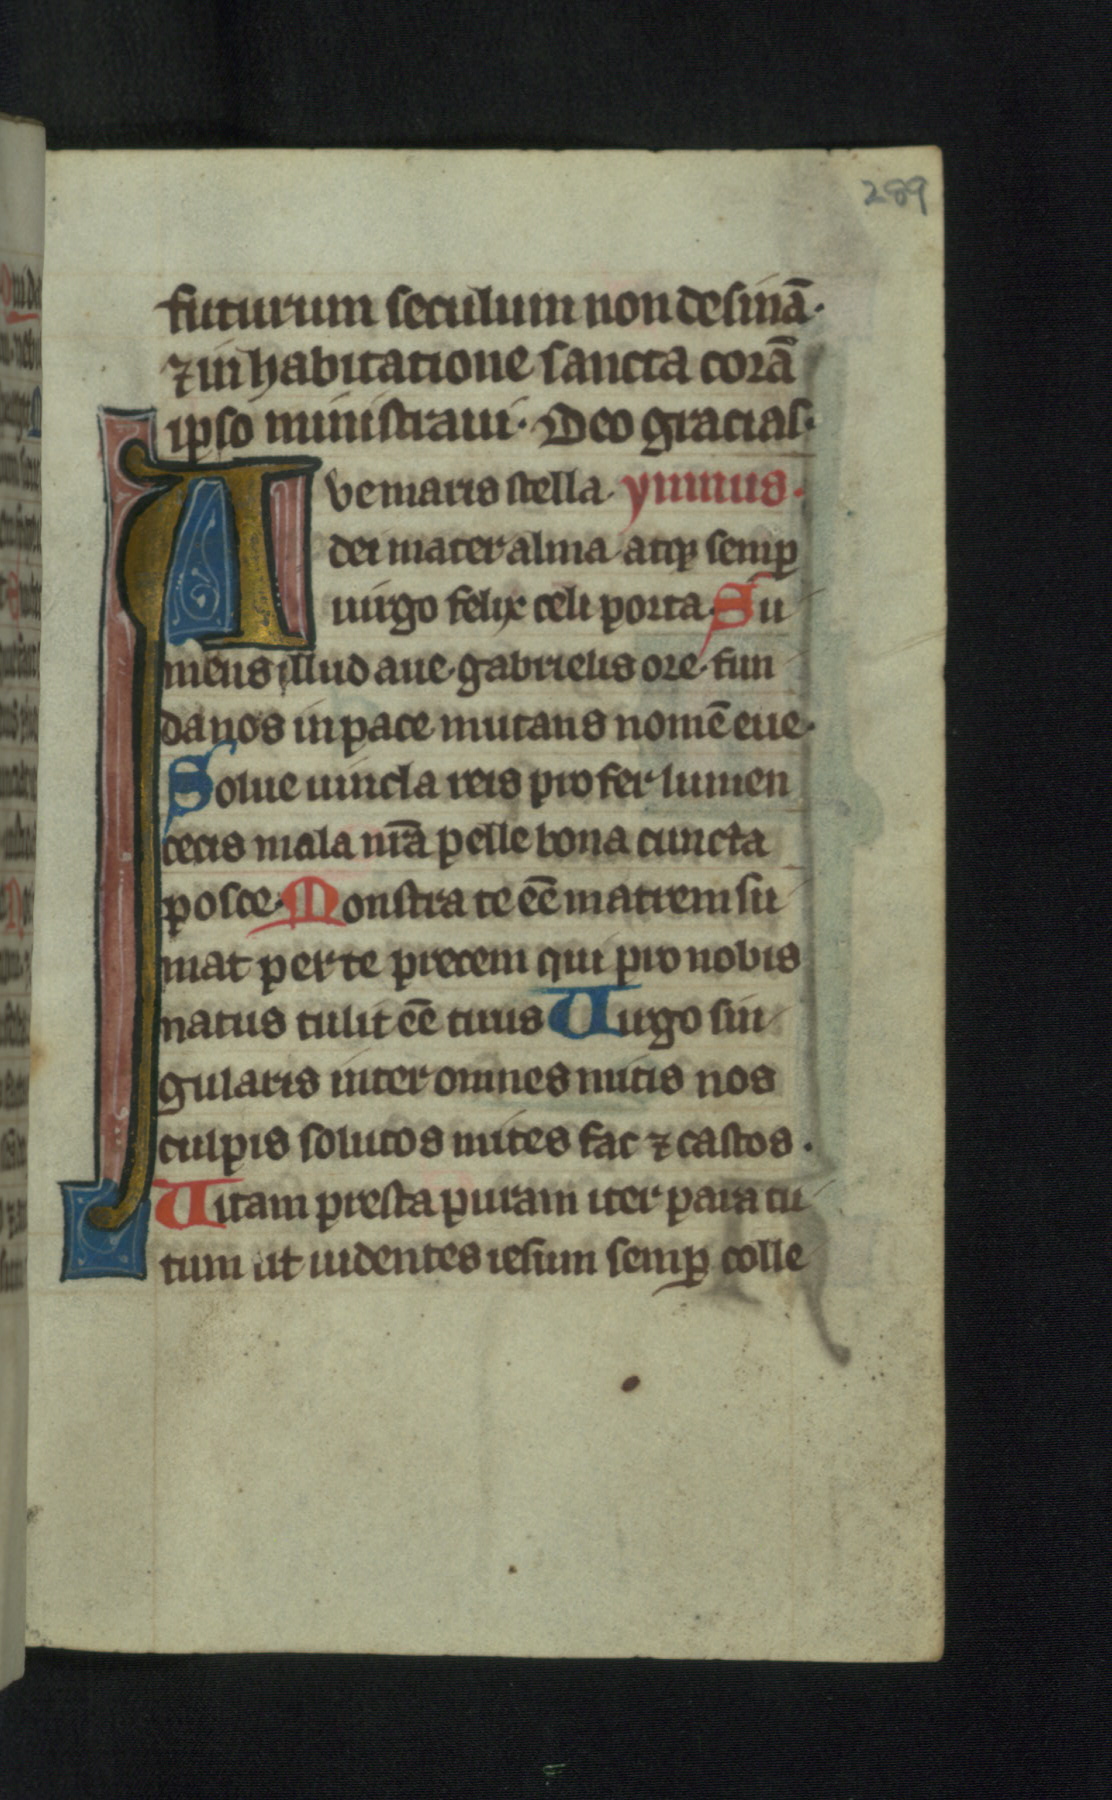 289
futurum seculum non desinā.
⁊ in habitatione sancta corā
ipso ministraui. Deo gracias.
Aue maris stella. ymnus.
dei mater alma atqꝫ semꝑ
uirgo felix celi porta. Su
mens illud aue gabrielis ore. fun
da nos in pace mutans nomē eue.
Solue uincla reis profer lumen
cecis mala nr̄a pelle bona cuncta
posce. Monstra te eē matrem su
mat per te precem qui pro nobis
natus tulit eē tuus Uirgo sin
gularis inter omnes mitis nos
culpis solutos mites fac ⁊ castos.
Uitam presta puram iter para tu
tum ut uidentes iesum semꝑ colle